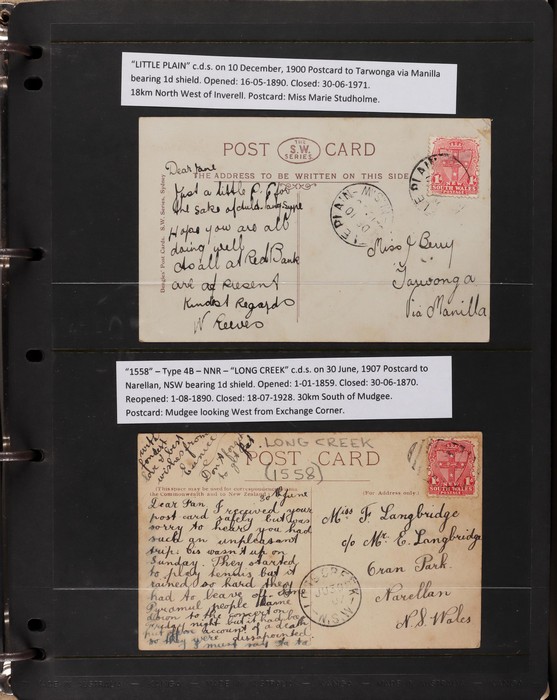 "LITTLE PLAIN" c.d.s. on 10 December, 1900 Postcard to Tarwonga via Manilla
bearing 1d shield. Opened: 16-05-1890. Closed: 30-06-1971.
18km North West of Inverell. Postcard: Miss Marie Studholme.
POST THE S.W. SERIES CARD
THE ADDRESS TO BE WRITTEN ON THIS SIDE
Dear Jane
Just a little P.C for
the sake of auld lang syne
Hope you are all
doing well
as all at Red Bank
are at present
Kindest Regards
W Reeves
S.W. Series, Sydney
E PLAIN N.S.W
NEW SOUTH WALES
POSTAGE
Miss J Berry
Tarwonga
Via Manilla
"1558" – Type 4B – NNR – "LONG CREEK" c.d.s. on 30 June, 1907 Postcard to
Narellan, NSW bearing 1d shield. Opened: 1-01-1859. Closed: 30-06-1870.
Reopened: 1-08-1890. Closed: 18-07-1928. 30km South of Mudgee.
Postcard: Mudgee looking West from Exchange Corner.
with
fondest
love & best
wishes from
Eunice
Don't forget
to
LONG CREEK
(1558)
POST CARD
(This space may be used for correspondence
the Commonwealth and to New Zealand
(For Address only)
30th June
Dear Fan I received your
post card safely but was
sorry to hear you had
such an unpleasant
trip. wasnt up on
Sunday. They started
to play tennis but it
rained so hard they
had to leave off. Some
Pyramul people came
down to the concert on
Friday night but it had been
put off on account of a death
so they were disappointed.
I must say ta ta
CREEK N.S.W
NEW SOUTH WALES
POSTAGE
Miss F. Langbridge
c/o Mr. E. Langbridge
Oran Park.
Narellan
N.S. Wales